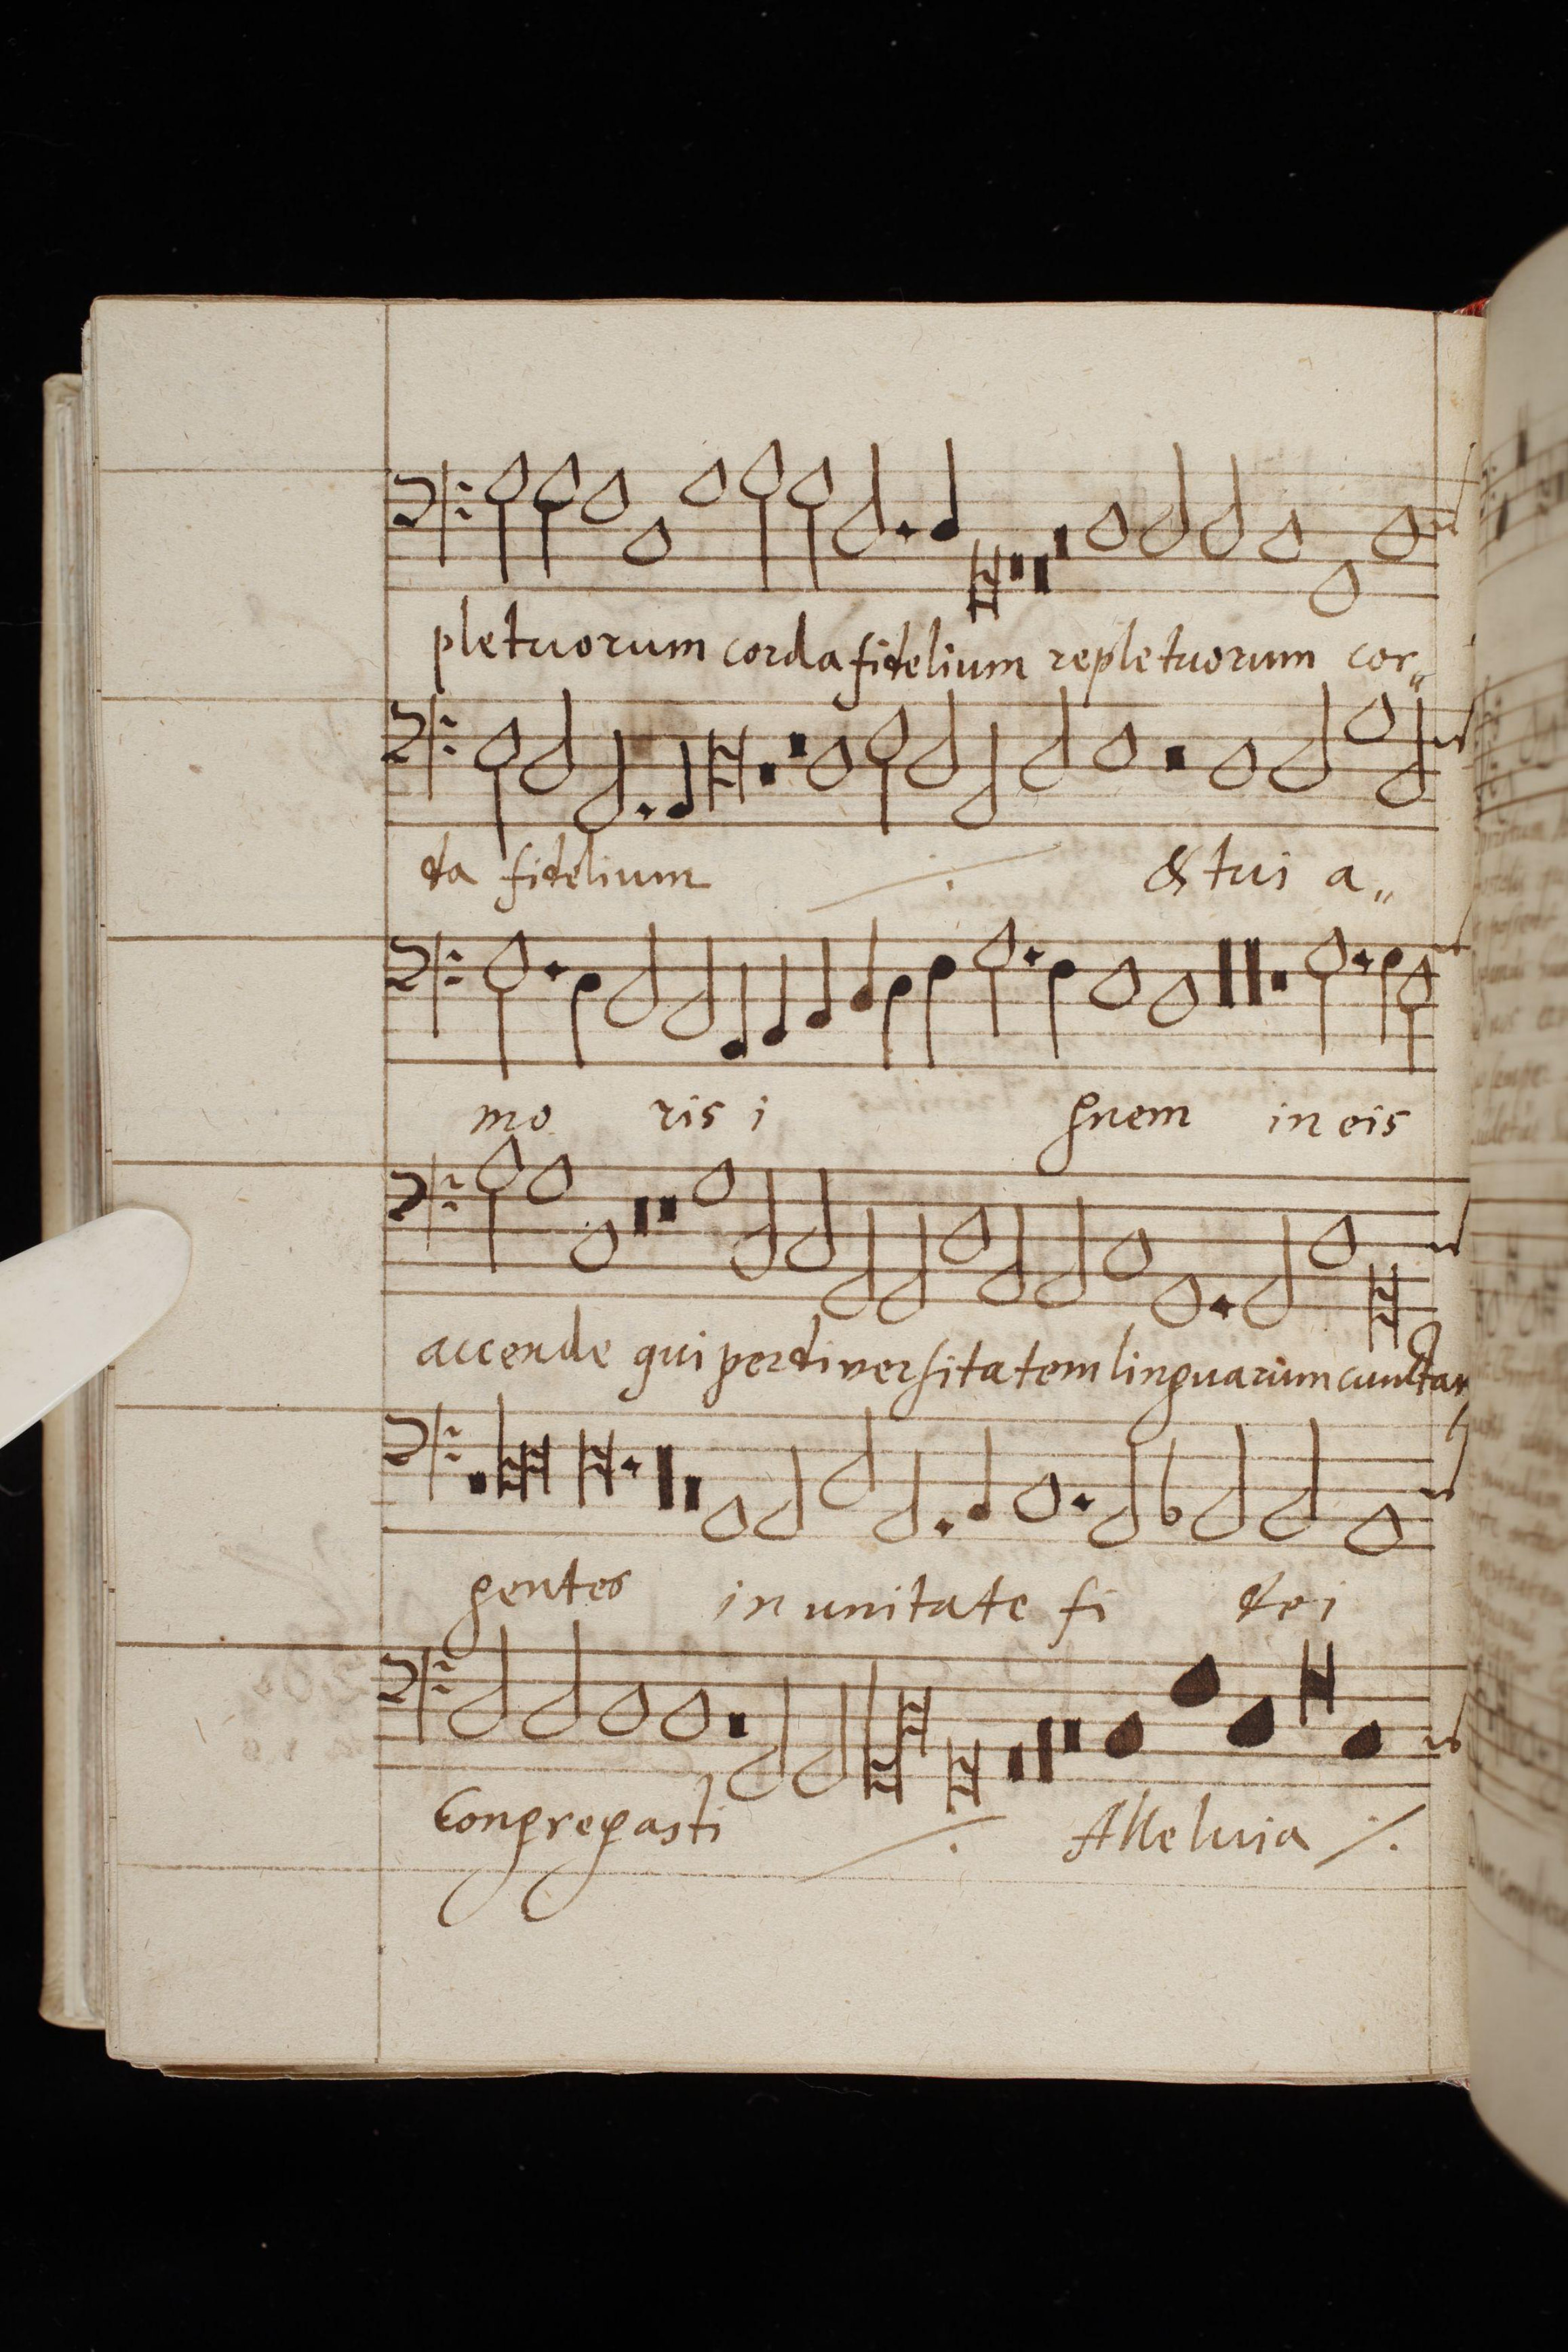 pletuorum corda fidelium repletuorum cor„
da fidelium ⁒ & tui a„
mo ris i gnem in eis
accende qui perdiversitatem linguarum cunctas
gentes in unitate fi dei
Congregasti ⁒ Alleluia ⁒